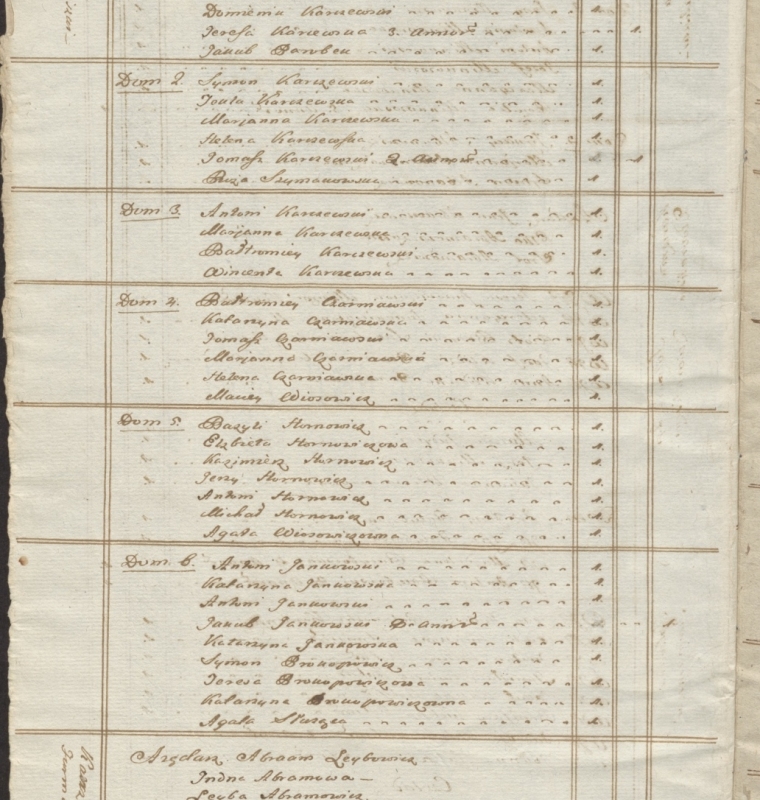 Dominik Karczewski 1.
Teressa Karczewska 3. Annor. 1.
Jakub Parobek 1.
Dom 2. Symon Karczewski 1.
Karczewska 1.
Marjanna Karczewska 1.
Helena Karczewska 1.
Tomasz Karczewski 2. Annor. 1.
Szymanowska 1.
Dom 3. Antoni Karczewski 1.
Marjanna Karczewska 1.
Bałtromiey Karczewski 1.
Wincenta Karczewska 1.
Dom 4. Bałtromiey Czarniawski 1.
Katarzyna Czarniawska 1.
Tomasz Czarniawski 1.
Marjanna Czarniawska 1.
Helena Czarniawska 1.
Maciey Wiosowicz 1.
Dom 5. Bazyli Hornowicz 1.
Elzbieta Hornowiczowa 1.
Kazimierz Hornowicz 1.
Jerzy Hornowicz 1.
Antoni Hornowicz 1.
Michał Hornowicz 1.
Agata Wiosowiczowna 1.
Dom 6. Antoni Jankowski 1.
Katarzyna Jankowska 1.
Antoni Jankowski 1.
Jakub Jankowski Annor. 1.
Katarzyna Jankowska 1.
Symon Prokopowicz 1.
Teresa Prokopowiczowa 1.
Katarzyna Prokopowiczowna 1.
Agata Słuząca 1.
Arędarz Abraam Leybowicz
Abramowa
Leyba Abramowicz